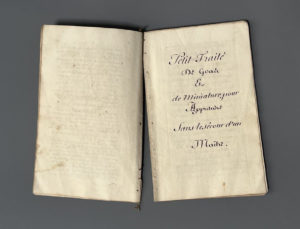 Petit Traité
De Goule
&
de Miniature, pour
Apprendre
Sans le secour d'un
Maitre.